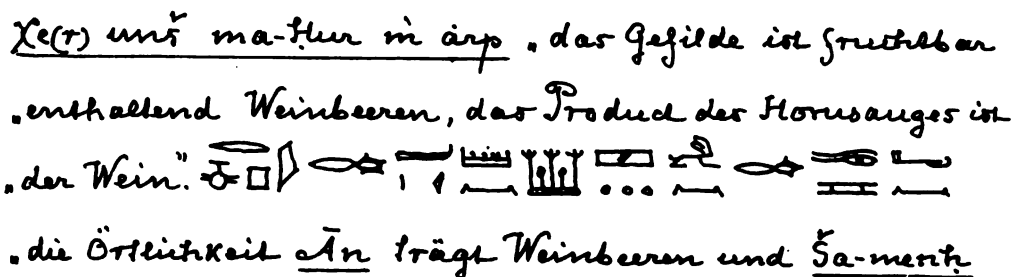 χe(r) unš ma-Hur m árp „das Gefilde ist fruchtbar
„enthaltend Weinbeeren, das Product des Horusauges ist
„der Wein.“
„die Örtlichkeit Ān trägt Weinbeeren und Ša-menh